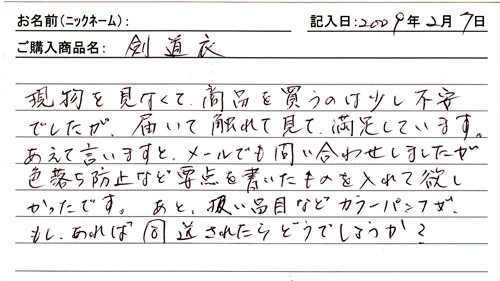 お名前(ニックネーム): 記入日:2009年2月7日
ご購入商品名: 剣道衣
現物を見なくて、商品を買うのは少し不安
でしたが、届いて触れて見て、満足しています。
あえて言いますと、メールでも問い合わせしましたが
色落ち防止など要点を書いたものを入れて欲し
かったです。あと、扱い品目などカラーパンフが、
もし、あれば同送されたらどうでしょうか?